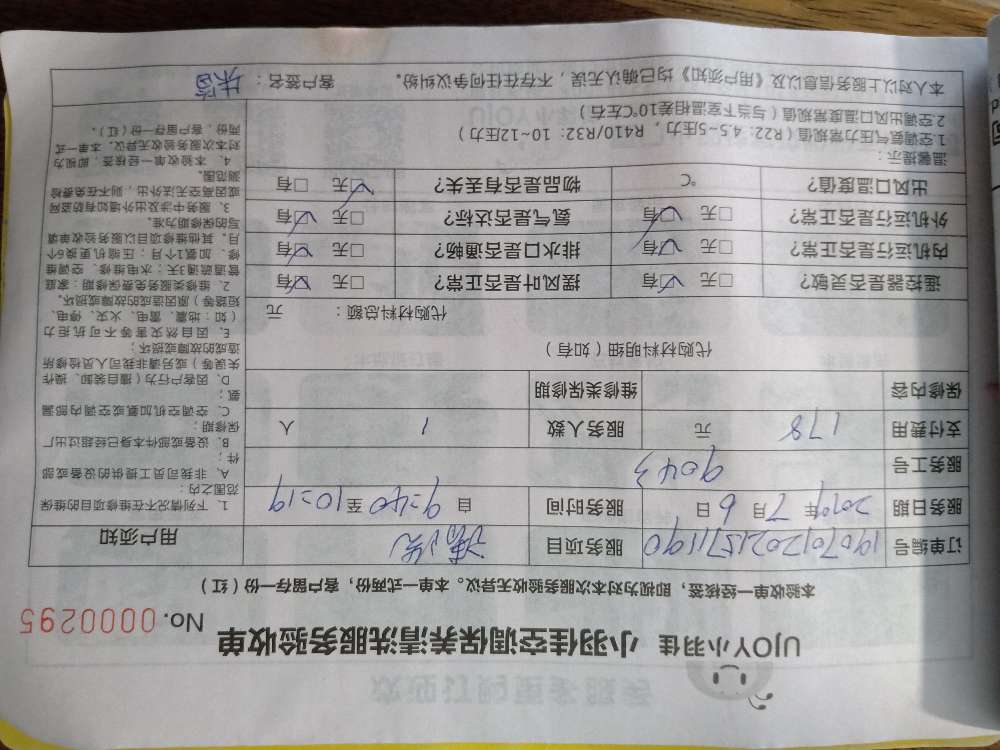 UJOY小羽佳 小羽佳空调保养清洗服务验收单 No. 0000295
本验收单一经核签，即视为对本次服务验收无异议。本单一式两份，客户留存一份（红）
订单编号 190701202157190 服务项目 清洗
服务日期 2019年7月6日 服务时间 自9:40至10:19
服务工号 9043
支付费用 178 元 服务人数 1 人
保修内容 维修类保修期
代购材料明细（如有）
代购材料总额： 元
遥控器是否灵敏？ □无 ☑有 摆风叶是否正常？ □无 ☑有
内机运行是否正常？ □无 ☑有 排水口是否通畅？ □无 ☑有
外机运行是否正常？ □无 ☑有 氨气是否达标？ □无 ☑有
出风口温度值？ ℃ 物品是否有丢失？ ☑无 □有
用户须知
1．下列情况不在维修项目的维保
范围之内：
A、非我司员工提供的设备或部
件；
B、设备或部件本身已经超过出厂
保修期；
C、空调空机加氨或空调内部漏
氨；
D、因客户行为（擅自装卸、操作
失误等）或另请非我司人员检修所
造成的故障或损坏；
E、因自然灾害等不可抗拒力
（如：地震、雷电、火灾、停电、
短路等）原因造成的故障或损坏。
2．维修类服务免费保修期：家庭
管道疏通3天；水电维修、空调维
修、加氨1个月；压缩机更换6个
月。其他维修项目以服务验收单填
写的保修期为准。
3．服务中涉及出外墙如有防盗网
或因高空无法外出，则不在免费检
测范围。
4．本验收单一经核签，即视为
对本次服务验收无异议，本单一式
两份，客户留存一份（红）。
温馨提示：
1.空调氨气压力常规值（R22：4.5~5压力，R410/R32：10~12压力）
2.空调出风口温度常规值（与当下室温相差10℃左右）
本人对以上服务信息以及《用户须知》均已确认无误，不存在任何争议纠纷。 客户签名：